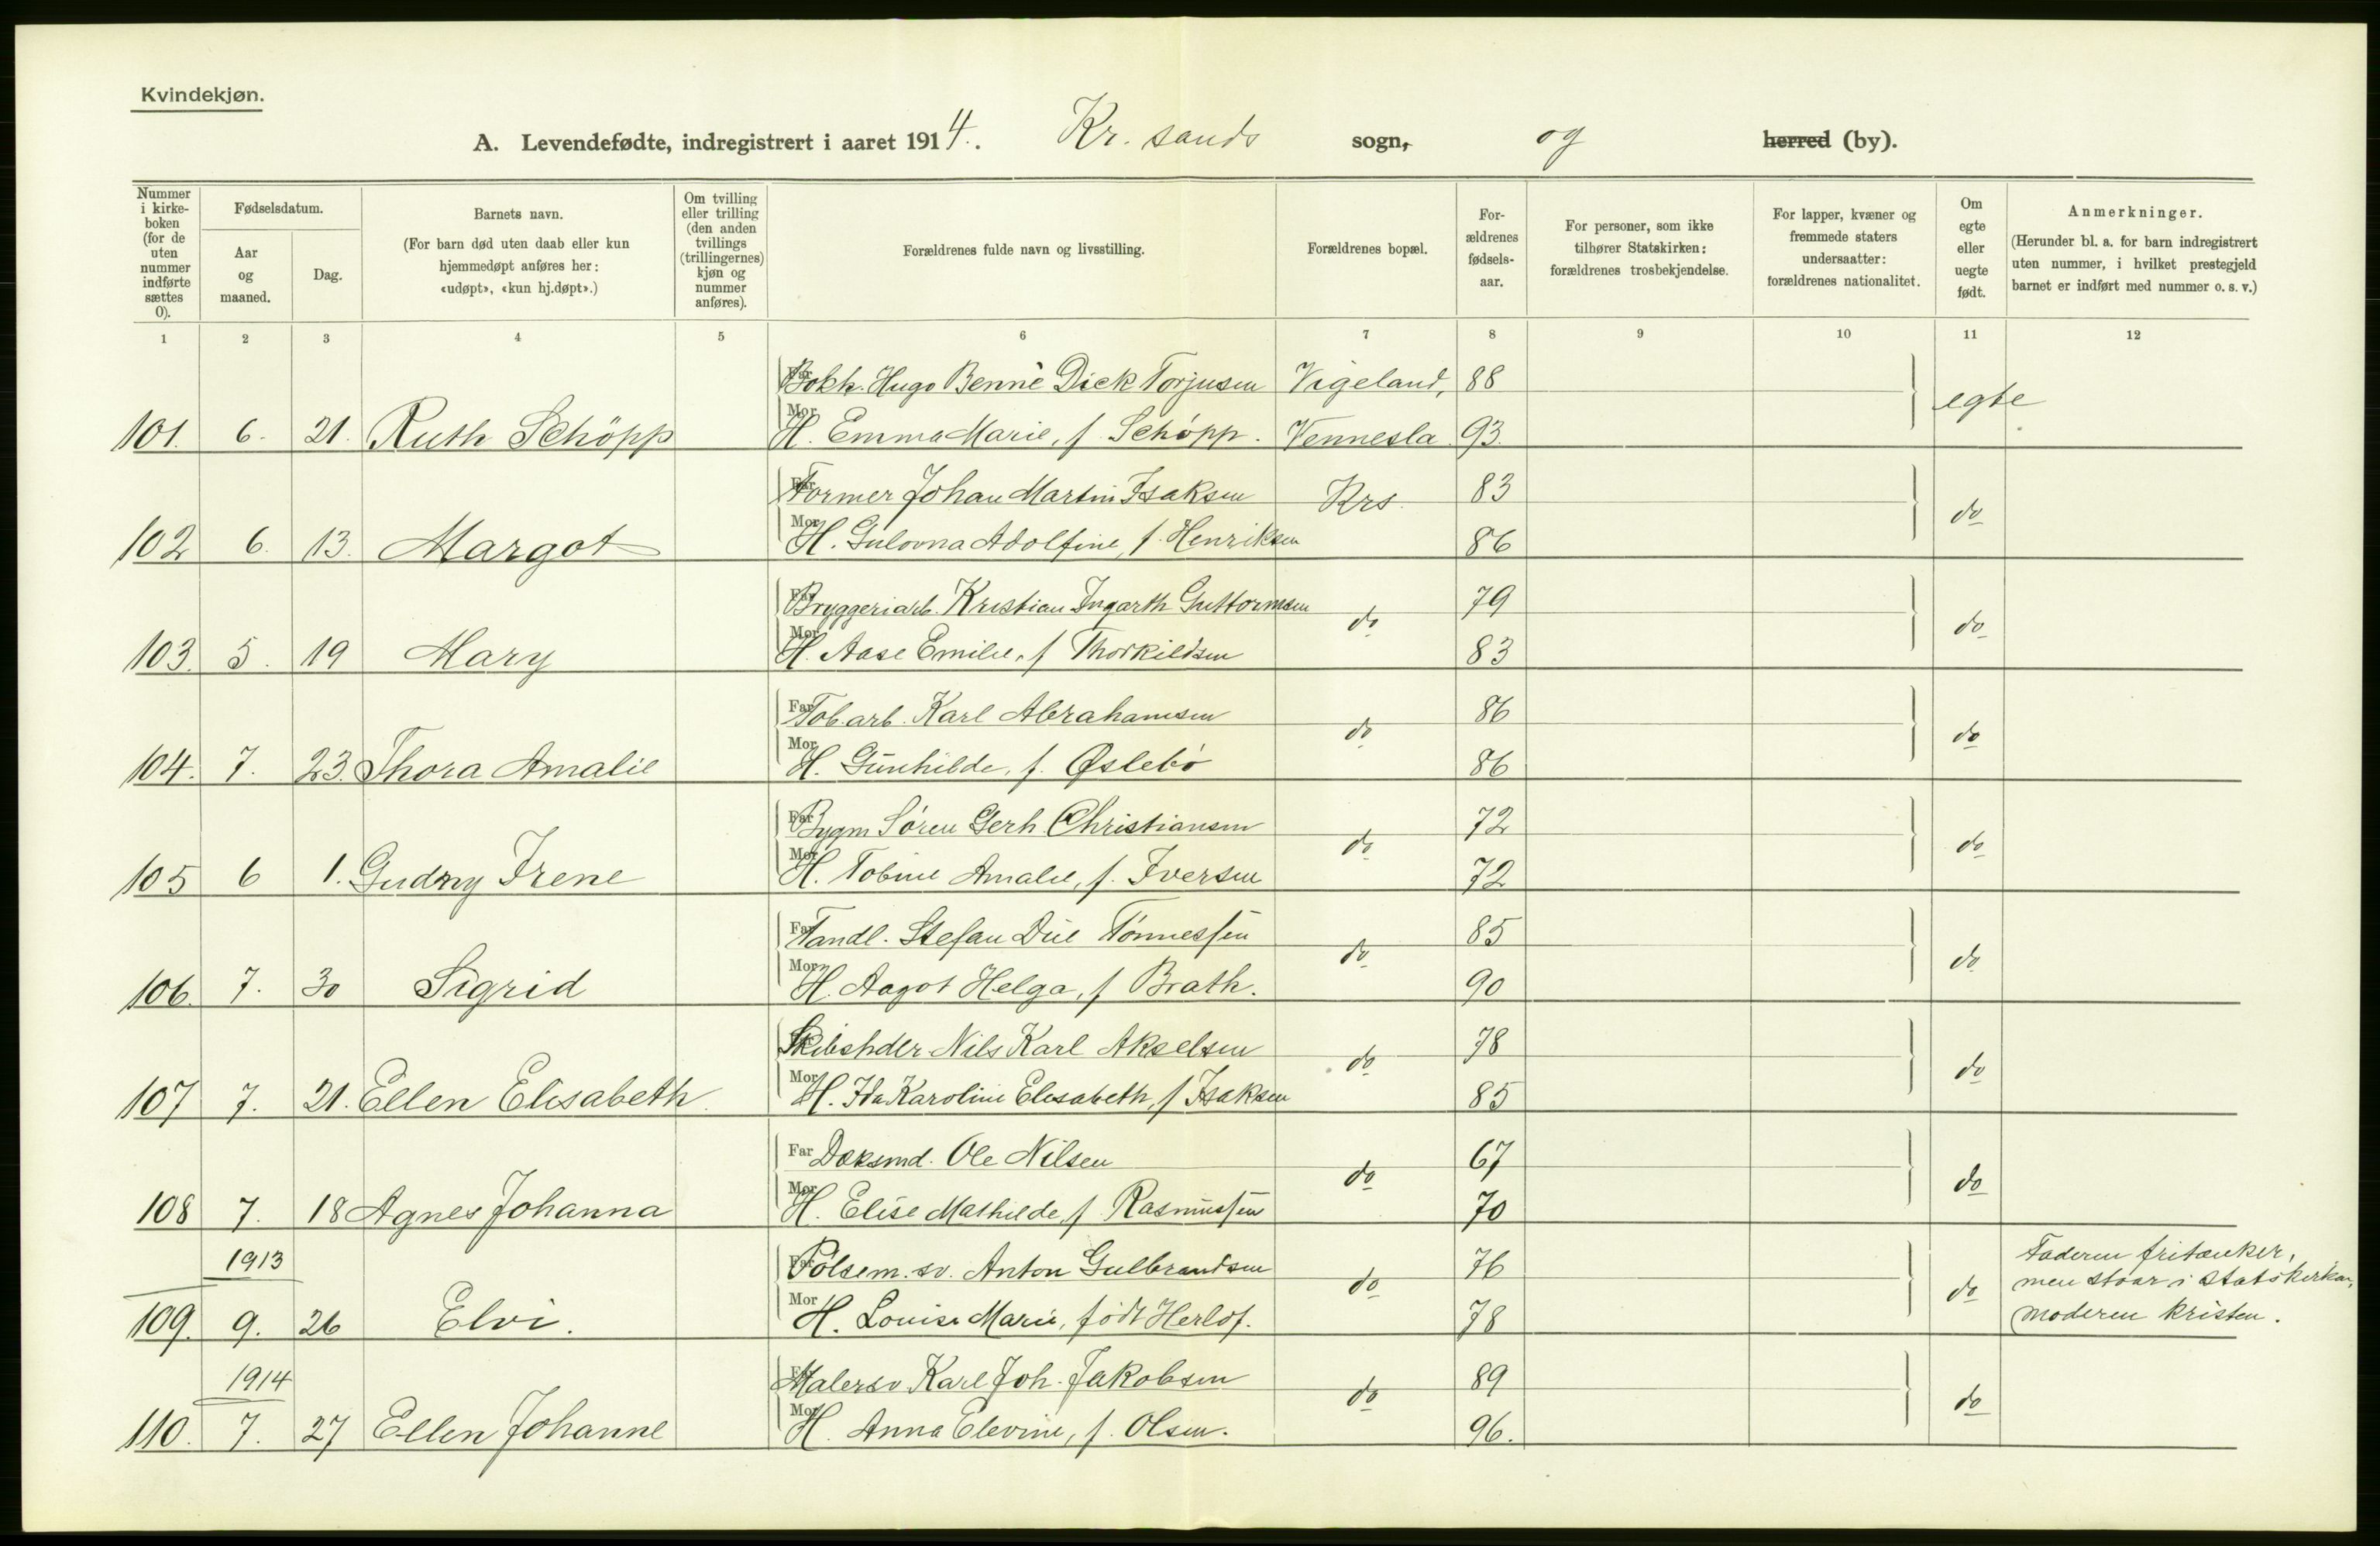 Kvindekjøn.
A. Levendefødte, indregistrert i aaret 1914. Kr. sands sogn, og herred (by).
Nummer i kirke-boken (for de uten nummer indførte sættes 0).
Fødselsdatum.
Aar og maaned.
Dag.
Barnets navn.
(For barn død uten daab eller kun hjemmedøpt anføres her: «udøpt», «kun hj.døpt».)
Om tvilling eller trilling (den anden tvillings (trillingernes) kjøn og nummer anføres).
Forældrenes fulde navn og livsstilling.
Forældrenes bopæl.
For-ældrenes fødsels-aar.
For personer, som ikke tilhører Statskirken: forældrenes trosbekjendelse.
For lapper, kvæner og fremmede staters undersaatter: forældrenes nationalitet.
Om egte eller uegte født.
Anmerkninger.
(Herunder bl. a. for barn indregistrert uten nummer, i hvilket prestegjeld barnet er indført med nummer o. s. v.)
1 2 3 4 5 6 7 8 9 10 11 12
Far Bokh. Hugo Benne Dick Torjusen Vigeland, 88
101. 6. 21. Ruth Schöpp Mor H. Emma Marie, f. Schöpp. Vennesla 93. egte
Far Former Johan Martin Isaksen Krs. 83
102 6. 13. Margot Mor H. Gulovna Adolfine, f. Henriksen 86 do
Far Bryggeriarb. Kristian Ingarth Guttormsen do 79
103. 5. 19 Mary Mor H. Aase Emilie, f Thorkildsen 83 do
Far Tob.arb. Karl Abrahamsen do 86
104. 7. 23. Thora Amalie Mor H. Gunhilde, f. Øslebö 86 do
Far Bygm Sören Gerh. Christiansen do 72
105 6 1. Gudny Irene Mor H. Tobine Amalie, f. Iversen 72 do
Far Tandl. Stefan Due Tönnessen do 85
106. 7. 30 Sigrid Mor H. Aagot Helga, f Brath. 90 do
Skibshdlr Nils Karl Akselsen do 78
107 7. 21. Ellen Elisabeth Mor H. Ida Karoline Elisabeth, f Isaksen 85 do
Far Doksmd. Ole Nilsen do 67
108 7. 18 Agnes Johanna Mor H. Elise Mathilde f Rasmussen 70 do
1913 Far Pølsem. sv. Anton Gulbrandsen do 76 Faderen fritænker,
men staar i statskirken,
109. 9. 26 Elvi. Mor H. Louise Marie, født Herlof. 78 do moderen kristen.
1914 Far Malersv Karl Joh. Jakobsen do 89
110. 7. 27 Ellen Johanne Mor H. Anna Elevine, f. Olsen. 96. do